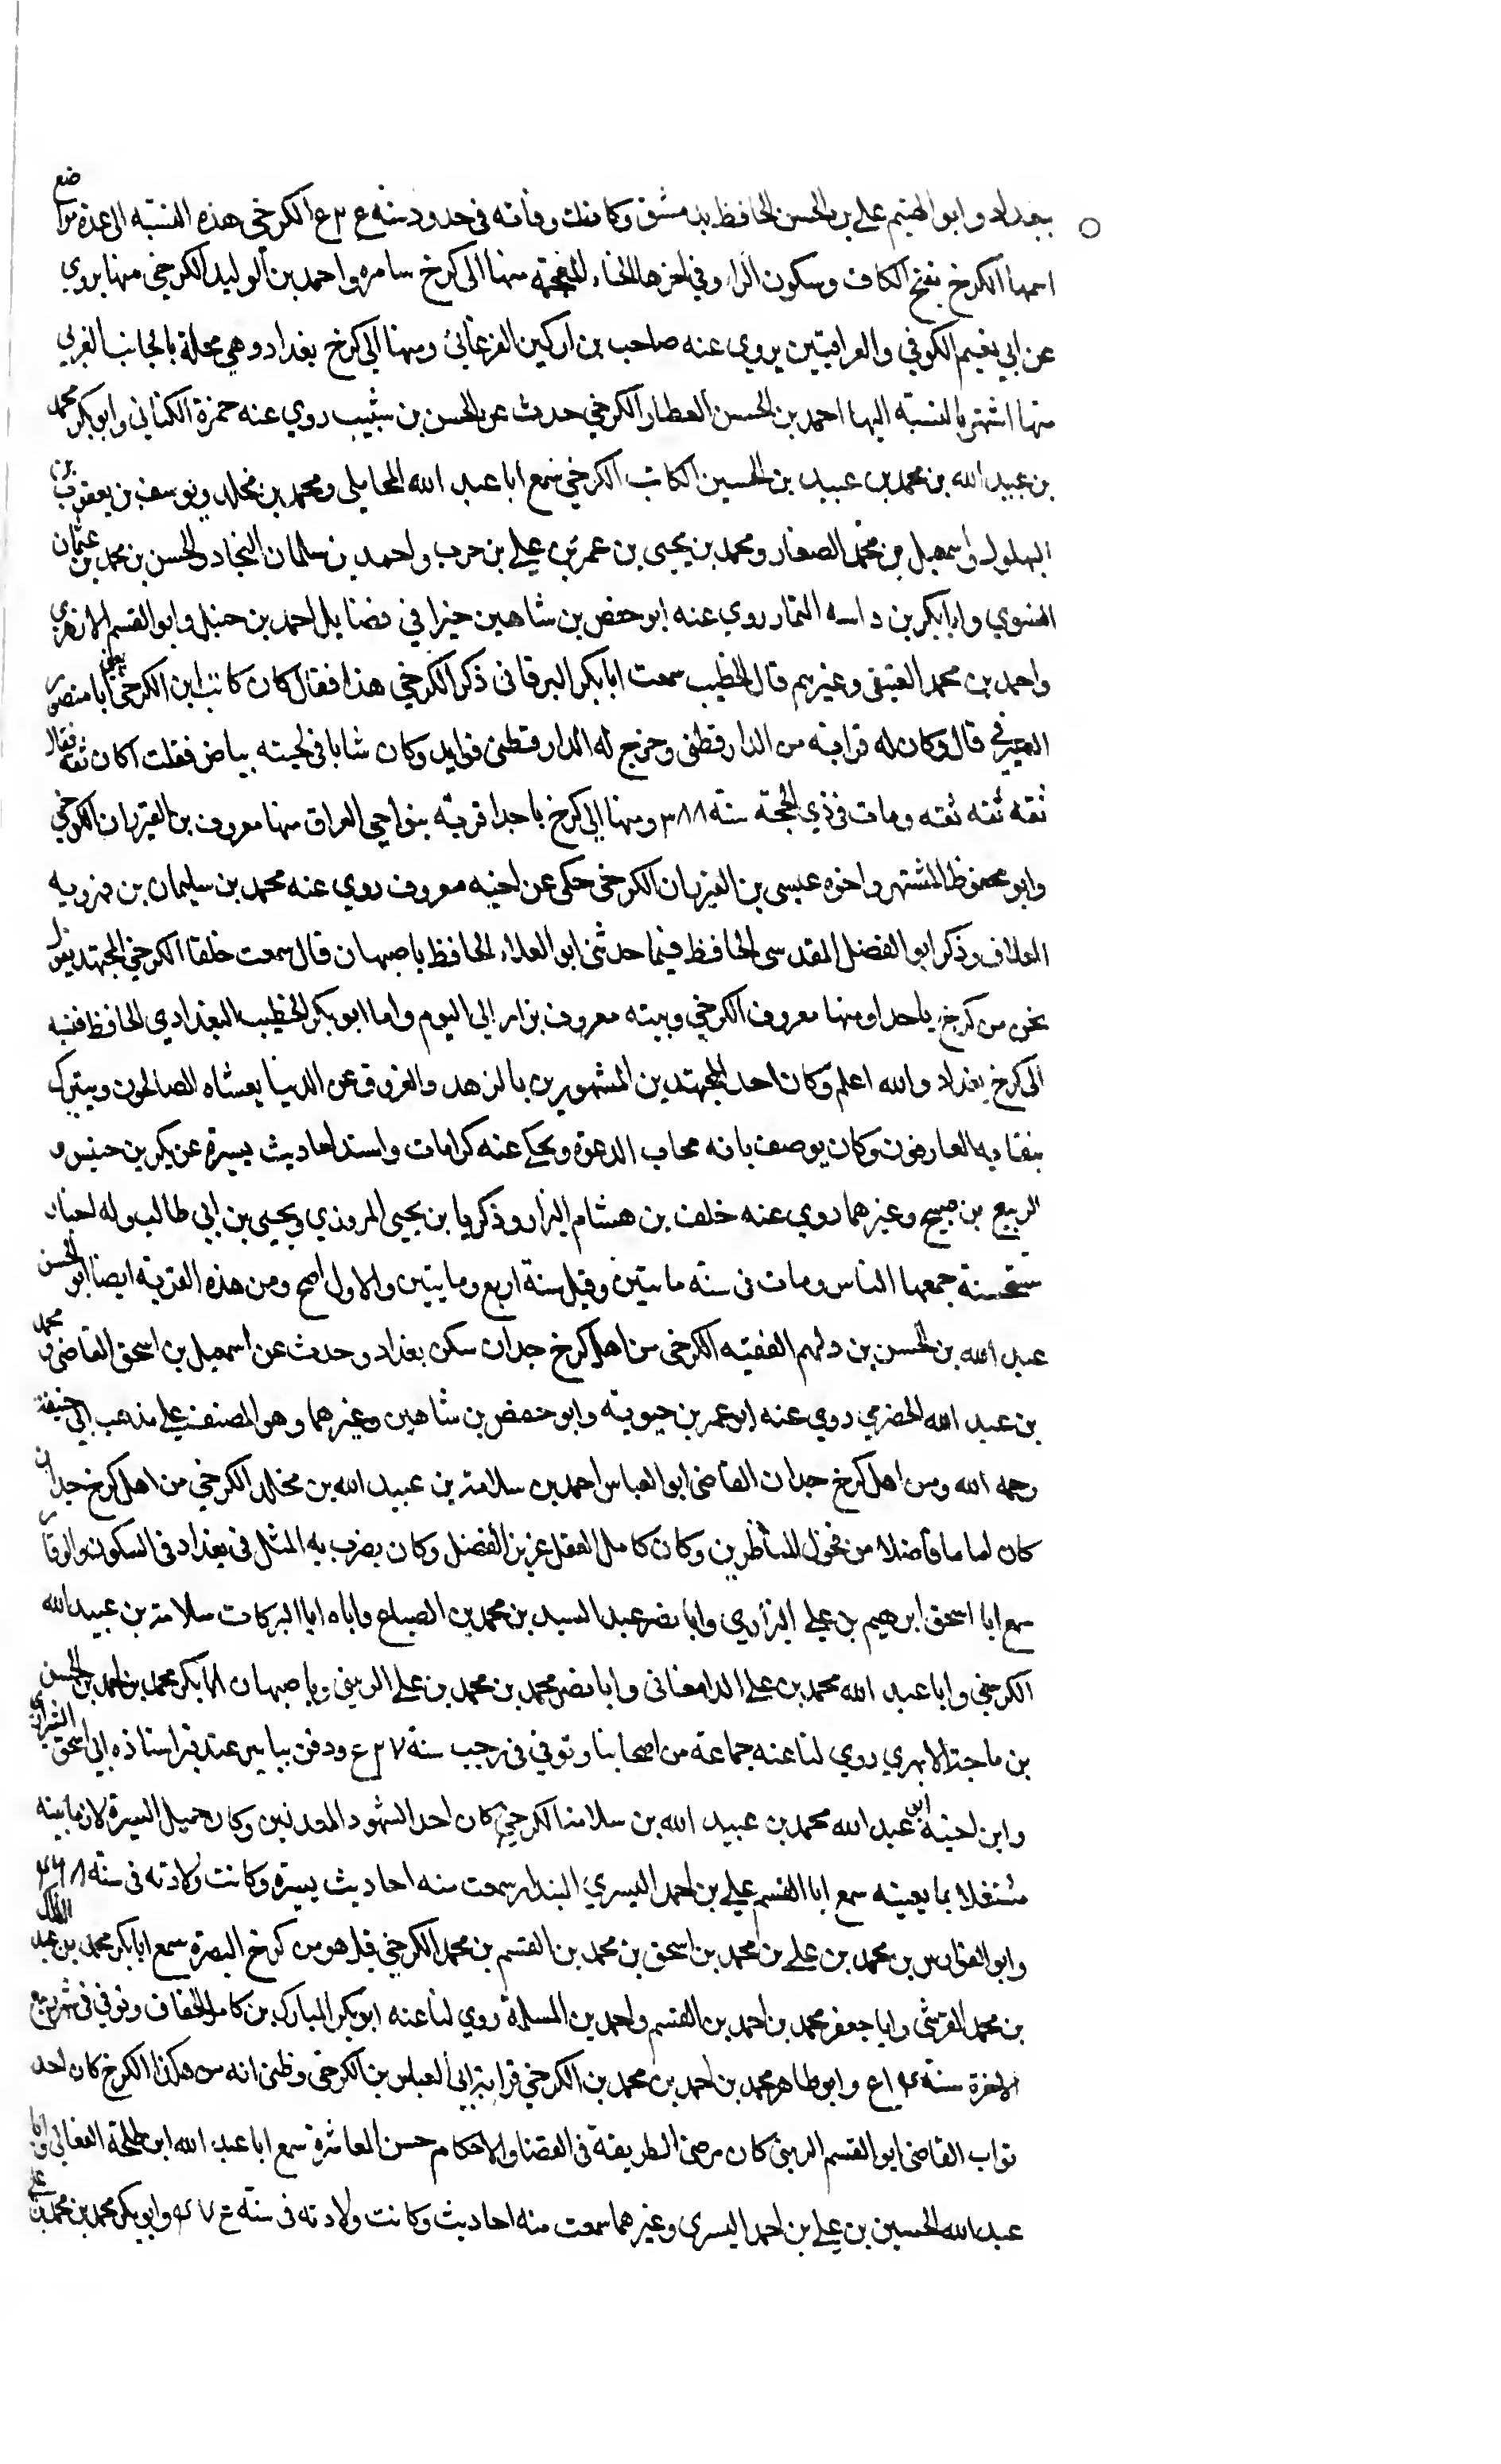 ببغداد وابو الهيثم علي بن الحسن الحافظ بدمشق وكانت وفاته في حدود سنة ع٣ع الكرخي هذه النسبة الى عدة مواضع
اسمها الكرخ بفتح الكاف وسكون الراء وفي اخرها الخاء المعجمة منها الى كرخ سامره واحمد بن الوليد الكرخي منها يروي
عن ابي نعيم الكوفي والعراقيين يروي عنه حاجب بن اركين الفرغاني ومنها الى كرخ بغداد وهي محلة بالجانب الغربي
منها اشتهر بالنسبة اليها احمد بن الحسن العطار الكرخي حدث عن الحسن بن شبيب روي عنه حمزة الكناني وابو بكر محمد
بن عبيد الله بن محمد بن عبيد بن الحسين الكاتب الكرخي سمع ابا عبد الله المحاملي ومحمد بن مخلد ويوسف بن يعقوب بن
البهلول واسمعيل بن محمد الصفار ومحمد بن يحيى بن عمر بن علي بن حرب واحمد بن سلمان النجاد والحسن بن محمد بن عثمان
الفسوي وابابكر بن داسه التمار روي عنه ابو حفص بن شاهين خبرا في فضايل احمد بن حنبل وابو القسم الازهري
واحمد بن محمد العتيقي وغيرهم قال الخطيب سمعت ابا بكر البرقاني ذكر الكرخي هذا فقال كان كاتب ابن الكرخي يعني ابا منصور
قال وكان له قرابة من الدارقطني وخرج له الدارقطني فوايد وكان شابا في لحيته بياض فقلت اكان ثقة فقال
ثقة ثقة ثقه ومات في ذي الحجة سنة ٣٨٨ ومنها الى كرخ باجدا قرية بنواحي العراق منها معروف بن الفيرزان الكرخي
وابو محفوظ المشتهر واخوه عيسى بن الفيرزان الكرخي حكى عن اخيه معروف روي عنه محمد بن سليمان بن فهرويه
العلاف وذكر ابو الفضل المقدسي الحافظ فيما حدثني ابو العلاء الحافظ باصبهان قال سمعت خلقا الكرخي المجتهد يقول
نحن من كرخ باجدا ومنها معروف الكرخي وبيته معروف يزار الى اليوم واما ابو بكر الخطيب البغدادي الحافظ فنسبه
الى كرخ بغداد والله اعلم وكان احد المجتهدين المشهورين بالزهد والعزوف عن الدنيا يغشاه الصالحون ويتبرك
بلقايه العارفون وكان يوصف بانه مجاب الدعوة ويحكي عنه كرامات واسند احاديث يسيرة عن بكر بن خنيس و
الربيع بن صبيح وغيرهما روي عنه خلف بن هشام البزار وذكريا بن يحيى المروزي ويحيى بن ابي طالب وله اخبار
مستحسنة جمعها الناس ومات في سنة مايتين وقيل سنة اربع ومايتين والاول اصح ومن هذه القرية ايضا ابو الحسن
عبد الله بن الحسن بن دلهم الفقيه الكرخي من اهل كرخ جدان سكن بغداد وحدث عن اسمعيل بن اسحق القاضي ومحمد
بن عبد الله الحضرمي روي عنه ابو عمر بن حيوية وابو حفص بن شاهين وغيرهما وهو المصنف علي مذهب ابي حنيفة
رحمه الله ومن اهل كرخ جدان القاضي ابو العباس احمد بن سلامة بن عبيد الله بن مخلد الكرخي من اهل كرخ جدان
كان اماما فاضلا من فحول المناظرين وكان كامل العقل غزير الفضل وكان يضرب به المثل في بغداد في السكون والوقار
سمع ابا اسحق ابرهيم بن علي وابا نصر عبد السيد بن محمد بن الصباغ واباه ابا البركات سلامة بن عبيد الله
الكرخي وابا عبد الله محمد بن علي الدامغاني وابا نصر محمد بن محمد بن علي الزينبي وباصبهان ابا بكر محمد بن احمد بن الحسن
بن ماجة الابهري روي لنا عنه جماعة من اصحابنا وتوفي في رجب سنة ٢٧ع ودفن بباب عند قبر استاذه ابي اسحق الشيرازي
وابن اخيه ابو عبد الله محمد بن عبيد الله بن سلامة الكرخي كان احد الشهود المعدلين وكان جميل السيرة لازما بيته
مشتغلا بما يعنيه سمع ابا القسم علي بن احمد البسري البندار سمعت منه احاديث يسيرة وكانت ولادته في سنة
وابو الفوارس بن محمد بن علي بن محمد بن اسحق بن محمد بن القسم بن محمد الكرخي قيل هو من كرخ البصرة سمع ابا بكر محمد بن عبد الملك
بن محمد القرشي وابا جعفر محمد بن احمد بن القسم واحمد بن المسلمة روي لنا عنه ابو بكر المبارك بن كامل الخفاف وتوفي في شهر ربيع
الاخرة سنة وابو طاهر محمد بن احمد بن محمد بن الكرخي قرابة ابي العباس بن الكرخي وظني انه من هذا الكرخ كان احد
نواب القاضي ابو القسم الزينبي كان مرضي الطريقة في القضا والاحكام حسن المعاشرة سمع ابا عبد الله ابن طلحة النعالي وابا
عبد الله الحسين بن علي بن احمد البسري وغيرهما سمعت منه احاديث وكانت ولادته في سنة وابو بكر محمد بن محمد بن علي